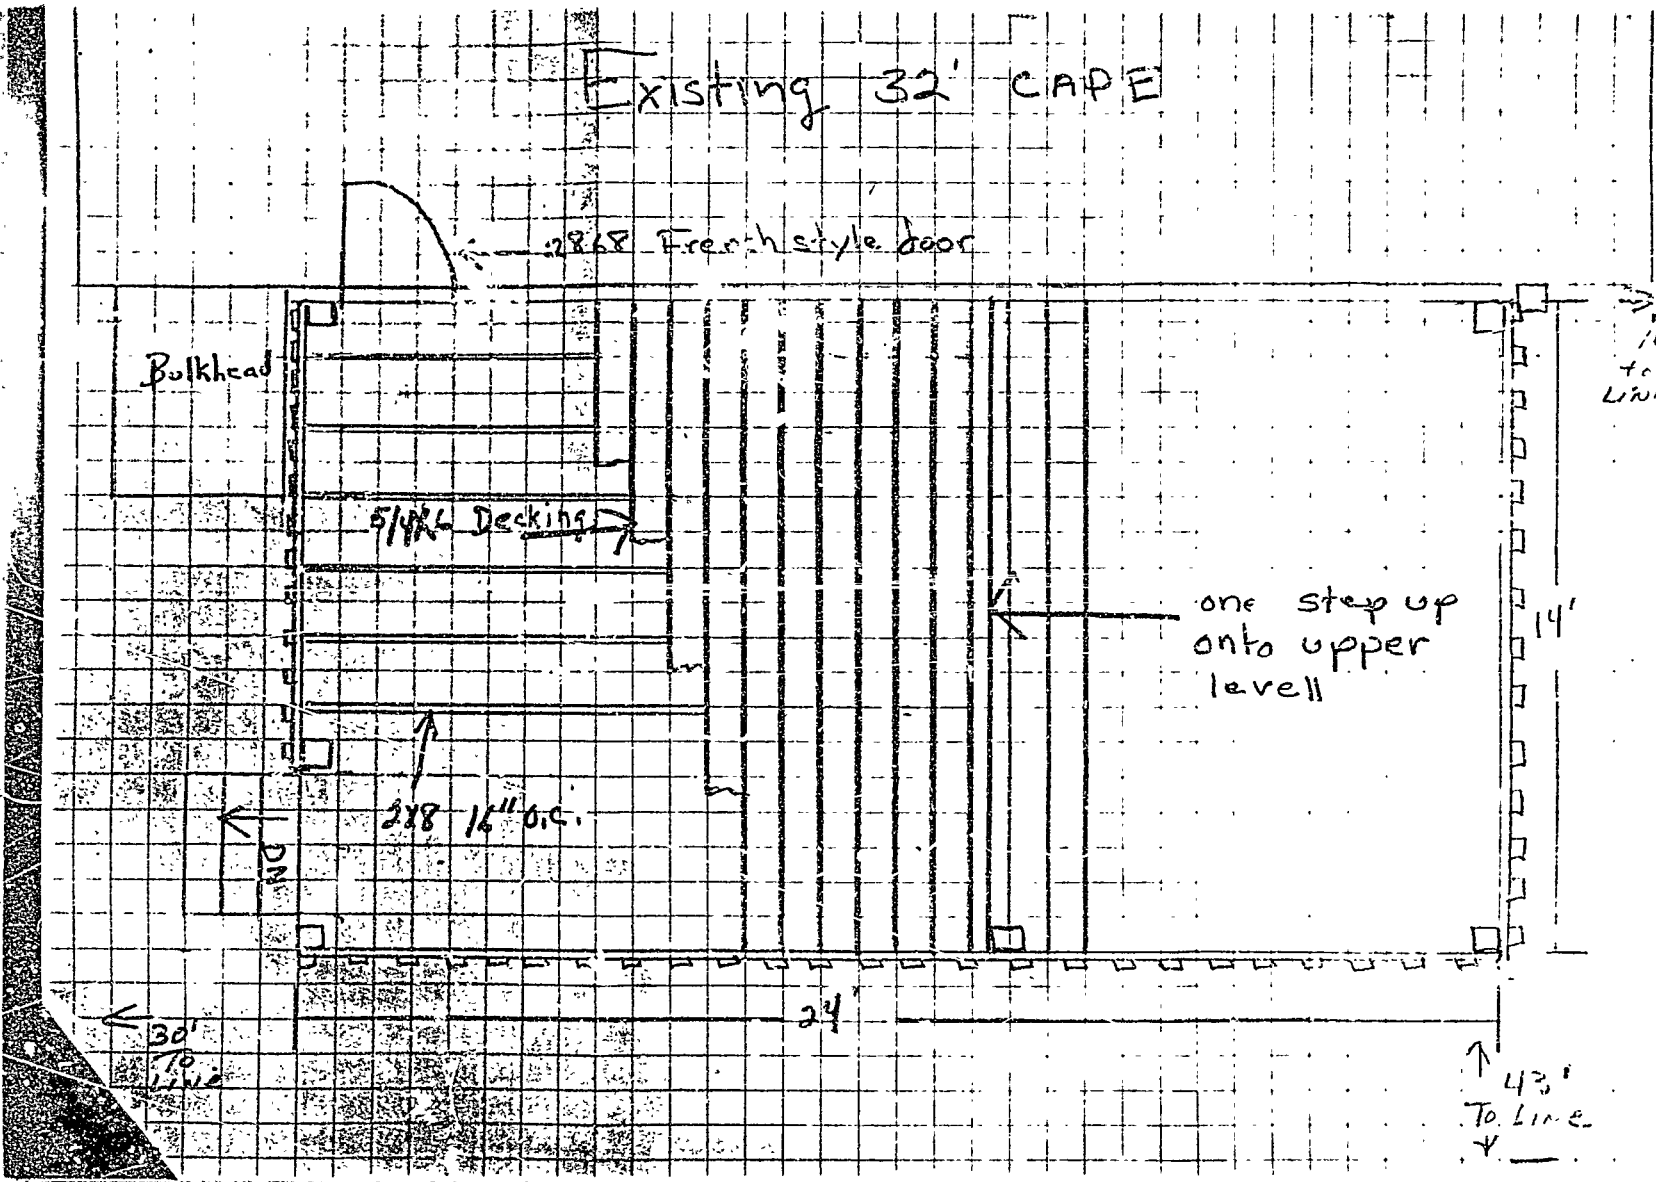 Existing 32' CAPE
2868 French style door
Bulkhead
to
5/4x6 Decking
one step up
onto upper
levell
14'
2x8 16" O.C.
DN
24'
30'
To
Line
To Line